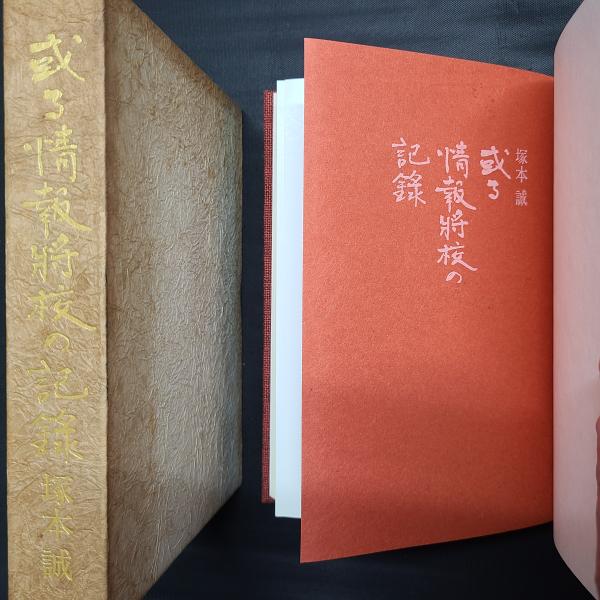 或る情報將校の記錄 塚本誠
塚本誠
或る
情報將校の
記錄